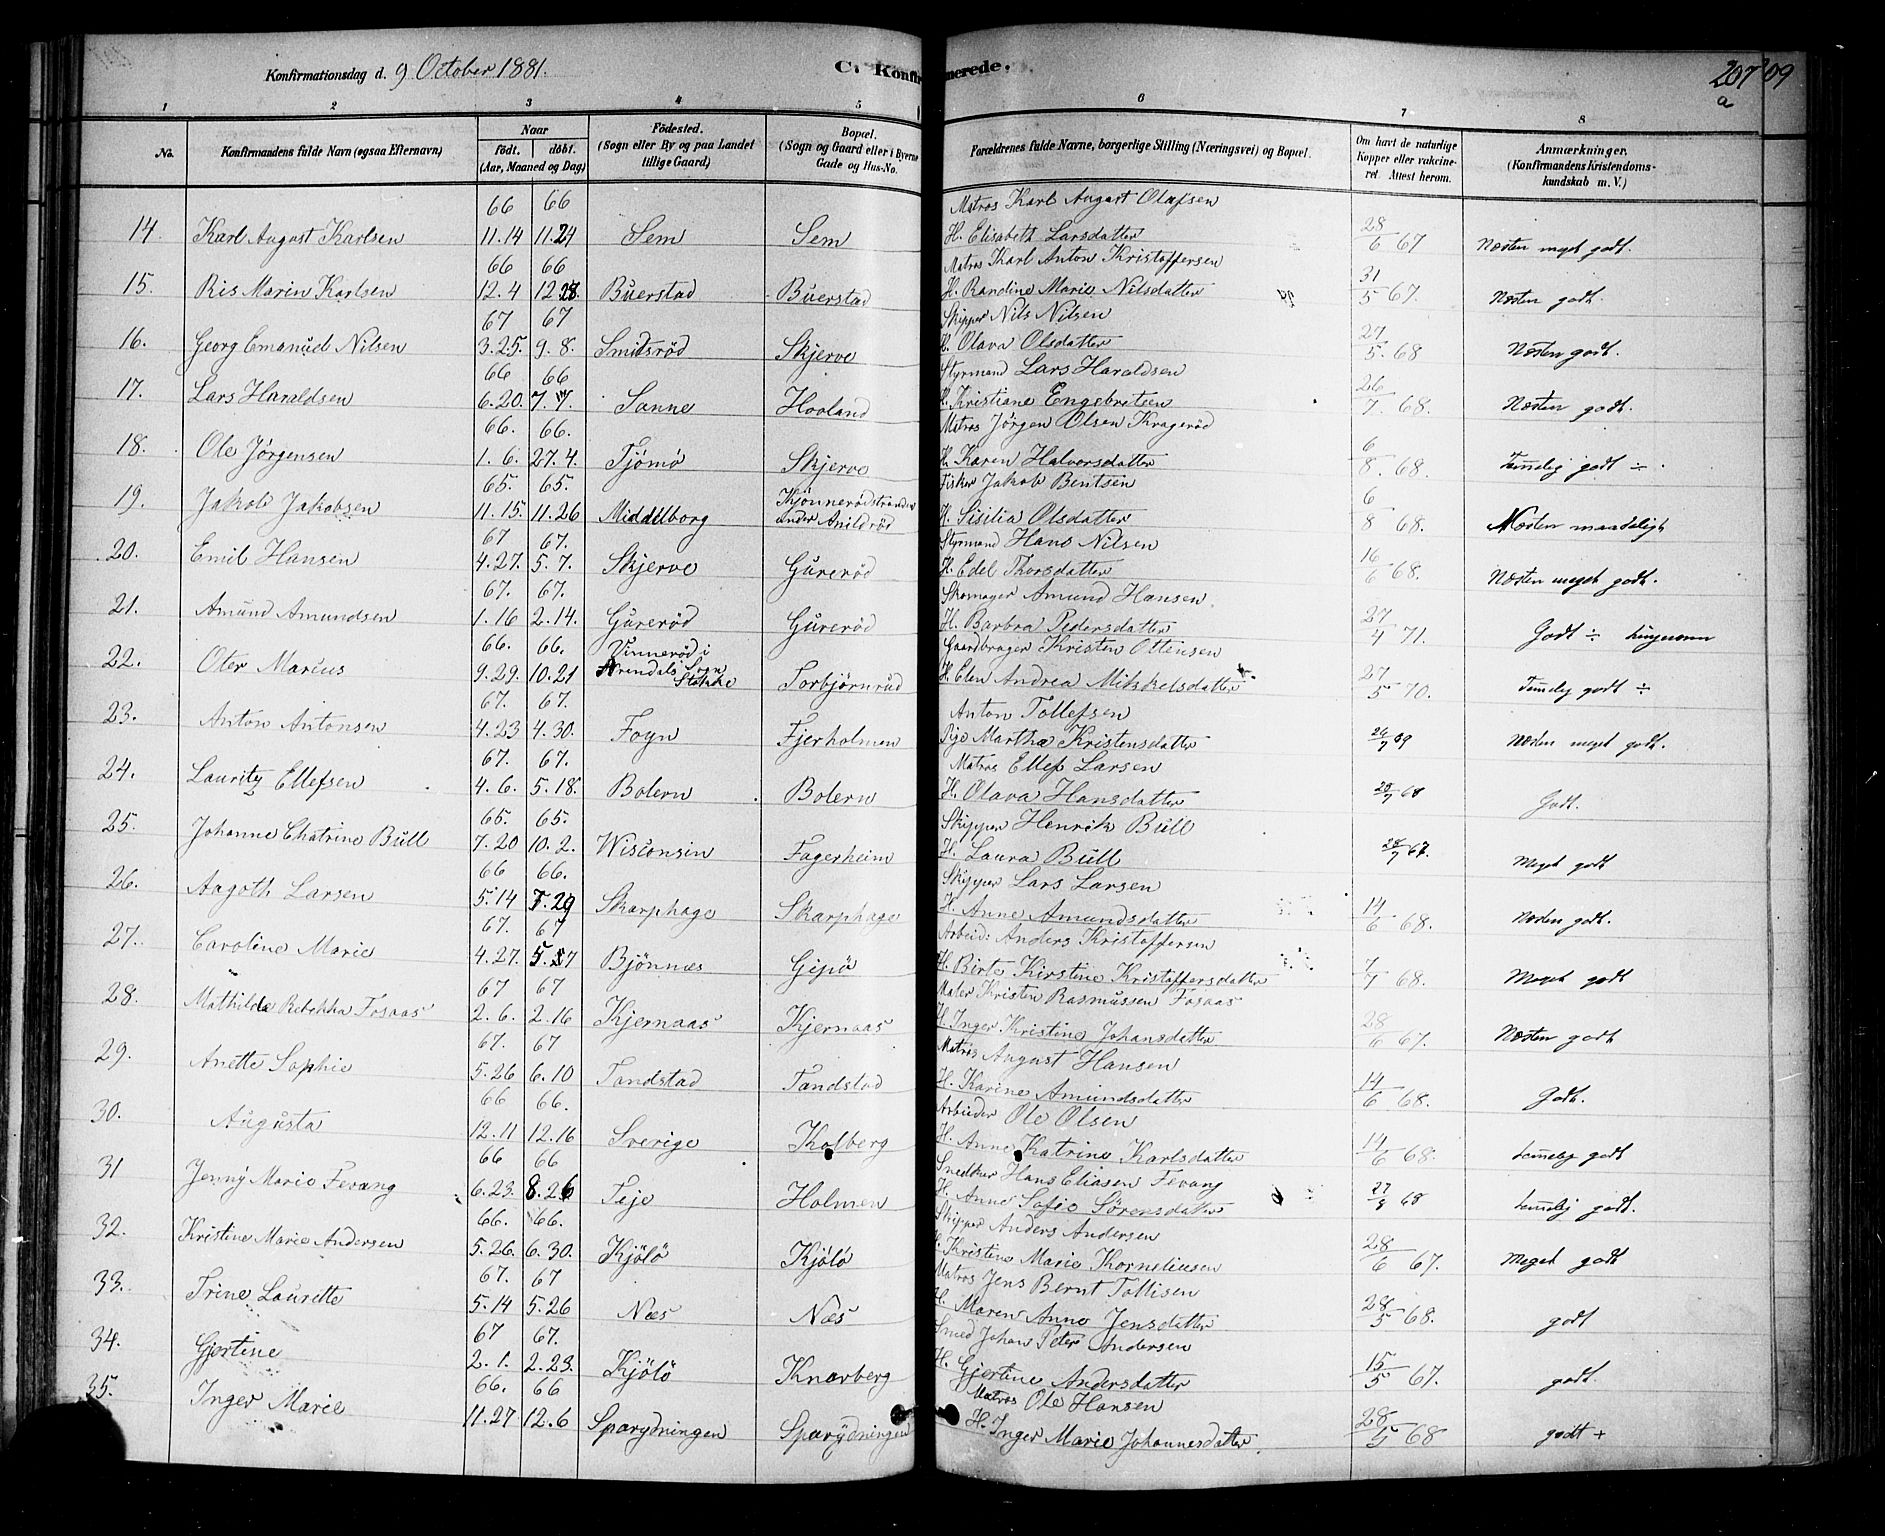 Konfirmationsdag d. 9 October 1881.
C. Konfirmerede.
207
a
09
1 2 3 4 5 6 7 8
No.
Konfirmandens fulde Navn (ogsaa Efternavn)
Naar
født. døbt.
(Aar, Maaned og Dag)
Fødested.
(Sogn eller By og paa Landet
tillige Gaard)
Bopæl.
(Sogn og Gaard eller i Byerne
Gade og Hus-No.
Forældrenes fulde Navne, borgerlige Stilling (Næringsvei) og Bopæl.
Om havt de naturlige
Kopper eller vakcine-
ret. Attest herom.
Anmærkninger.
(Konfirmandens Kristendoms-
kundskab m. V.)
66 66 Matros Karl August Olafsen
14. Karl August Karlsen 11.14 11.21 Sem Sem H. Elisabeth Larsdatter 28/6 67 Næsten meget godt.
66 66 Matros Karl Anton Kristoffersen
15. Ris Marin Karlsen 12.4 12.28. Buerstad Buerstad H. Randine Marie Nilsdatter 31/5 67. Næsten godt.
67 67 Skipper Nils Nilsen
16. Georg Emanuel Nilsen 3.25. 9.8. Smidsrød Skjerve H. Olava Olsdatter 27/5. 68 Næsten godt.
66 66 Styrmand Lars Haraldsen
17. Lars Haraldsen 6.20. 7.7. Sanne Hooland H. Kristiane Engebretsen 26/7. 68. Næsten godt.
66. 66. Matros Jørgen Olsen Kragerød
18. Ole Jørgensen 1.6. 27.4. Tjømø Skjerve H. Karen Halvorsdatter 6/8. 68. Temelig godt ÷
65. 65. Fisker Jakob Bentsen
19. Jakob Jakobsen 11.15. 11.26 Middelborg Kjønnerødstranden under Arildrød H. Sisilia Olsdatter 6/8 68. Næsten maadeligt
67 67. Styrmand Hans Nilsen
20. Emil Hansen 4.27. 5.7. Skjerve Gurerød H. Edel Thorsdatter 16/6 68. Næsten meget godt.
67. 67. Skomager Amund Hansen
21. Amund Amundsen 1.16 2.14. Gurerød Gurerød H. Barbra Pedersdatter 27/4 71. Godt ÷
66. 66. Gaardbruger Kristen Ottensen
22. Oter Marius 9.29. 10.21 Vinnerød i Arendals Sogn Stokke Torbjørnrød H. Elen Andrea Mikkelsdatter 27/5 70. Temelig godt ÷
67. 67. Anton Tollefsen
23. Anton Antonsen 4.23 4.30. Foyn Fjerholmen Pige Martha Kristensdatter 26/7 69 Næsten meget godt.
67. 67. Matros Ellef Larsen
24. Lauritz Ellefsen 4.6. 5.18. Bolern Bolern H. Olava Hansdatter 28/7 68 Godt.
65. 65. Skipper Henrik Bull
25. Johanne Chatrine Bull 7.20 10.2. Wisconsin Fagerheim H. Laura Bull 28/7 67. Meget godt
66 66. Skipper Lars Larsen
26. Aagoth Larsen 5.14 5.29 Skarphage Skarphage H. Anne Amundsdatter 14/6 68. Næsten godt.
67. 67 Arbeid: Anders Kristoffersen
27. Caroline Marie 4.27. 5.27 Bjønnes Gipø H. Birte Kirstine Kristoffersdatter 7/7 68. Meget godt
67 67 Maler Kristen Rasmussen Fosaas
28. Mathilde Rebekka Fosaas 2.6. 2.16 Kjernaas Kjernaas H. Inger Kristine Johansdatter 28/6 67. Næsten godt
67. 67 Matros August Hansen
29. Anette Sophie 5.26 6.10 Tandstad Tandstad H. Karine Amundsdatter 14/6 68. Godt.
66 66. Arbieder Ole Olsen
30. Augusta 12.11 12.16 Sverige Kolberg H. Anne Katrine Karlsdatter 14/6 68. temelig godt
66 66 Snedker Hans Eliasen Fevang
31 Jenny Marie Fevang 6.23. 8.26 Teje Holmen H. Anne Sofie Sørensdatter 27/8 68 temelig godt.
66. 66. Skipper Anders Andersen
32. Kristine Marie Andersen 5.26. 6.30. Kjølø Kjølø H. Kristine Marie Korneliusen 28/6 67. Meget godt
67. 67 Matros Jens Bernt Tollisen
33. Trine Laurette 5.14 5.26 Næs Næs H. Maren Anne Jensdatter 28/5 68. godt
67 67. Smed Johan Peter Andersen
34. Gjertine 2.1. 2.23. Kjølø Knarberg H. Gjertine Andersdatter 15/5 67. godt.
66. 66 Matros Ole Hansen
35. Inger Marie 11.27 12.6 Sparydningen Sparydningen H. Inger Marie Johannesdatter. 28/5 68 godt +